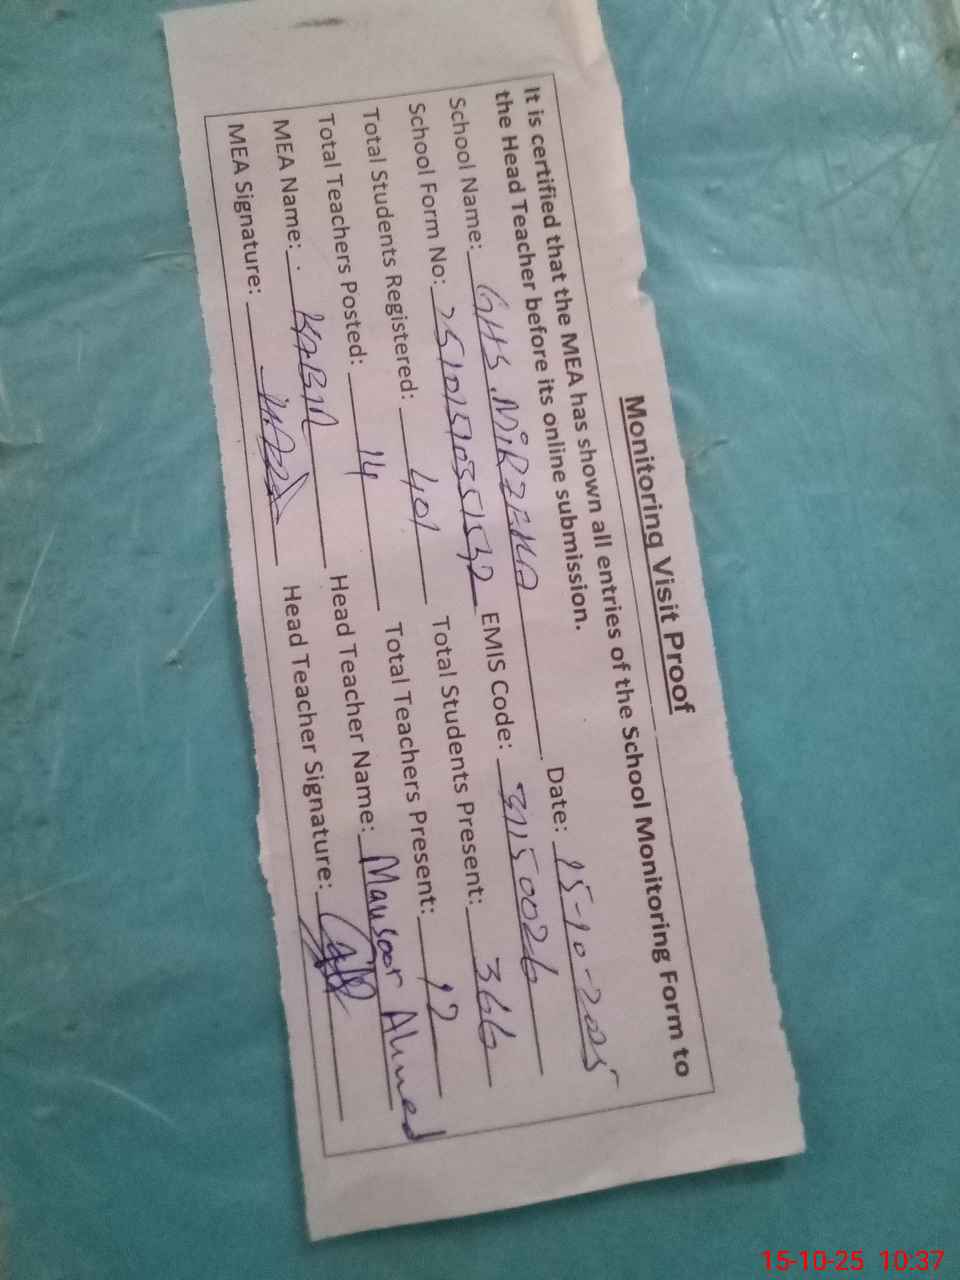 Monitoring Visit Proof
It is certified that the MEA has shown all entries of the School Monitoring Form to
the Head Teacher before its online submission.
School Name: GHS. MIRZEKA Date: 15-10-2025
School Form No: 2510151035132 EMIS Code: 31150026
Total Students Registered: 401 Total Students Present: 366
Total Teachers Posted: 14 Total Teachers Present: 12
MEA Name: Head Teacher Name: Mansoor Ahmed
MEA Signature: Head Teacher Signature:
15-10-25 10:37